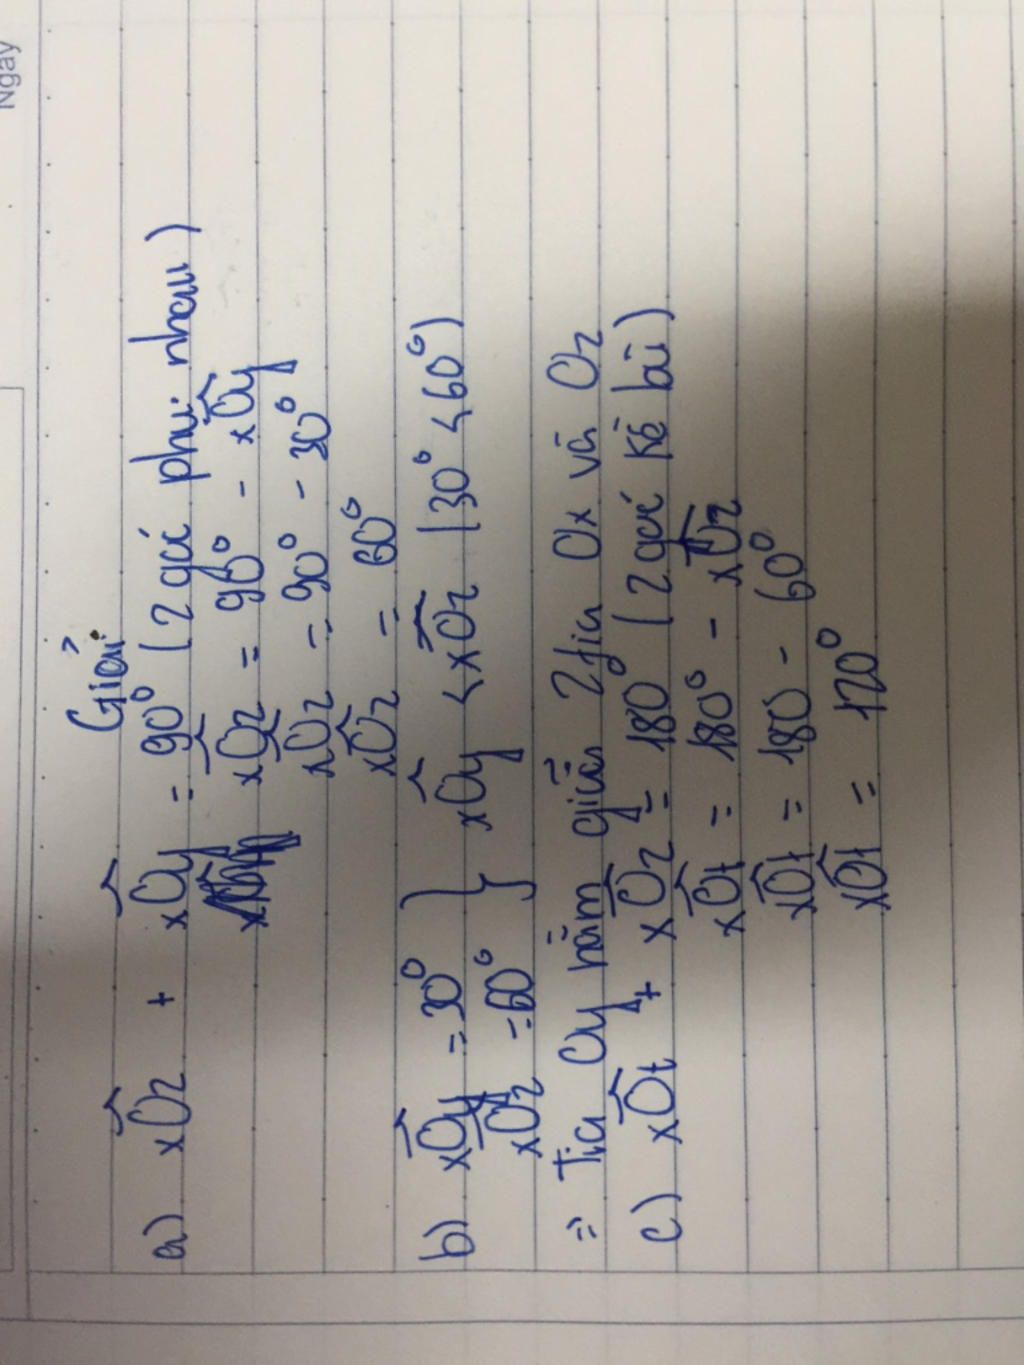 Ngày
Giải:
a) xÔz + xÔy = 90° (2 góc phụ nhau)
xÔz = 90° - xÔy
xÔz = 90° - 30°
xÔz = 60°
b) xÔy = 30° } xÔy < xÔz (30° < 60°)
xÔz = 60°
=> Tia Oy nằm giữa 2 tia Ox và Oz
c) xÔt + xÔz = 180° (2 góc kề bù)
xÔt = 180° - xÔz
xÔt = 180 - 60°
xÔt = 120°